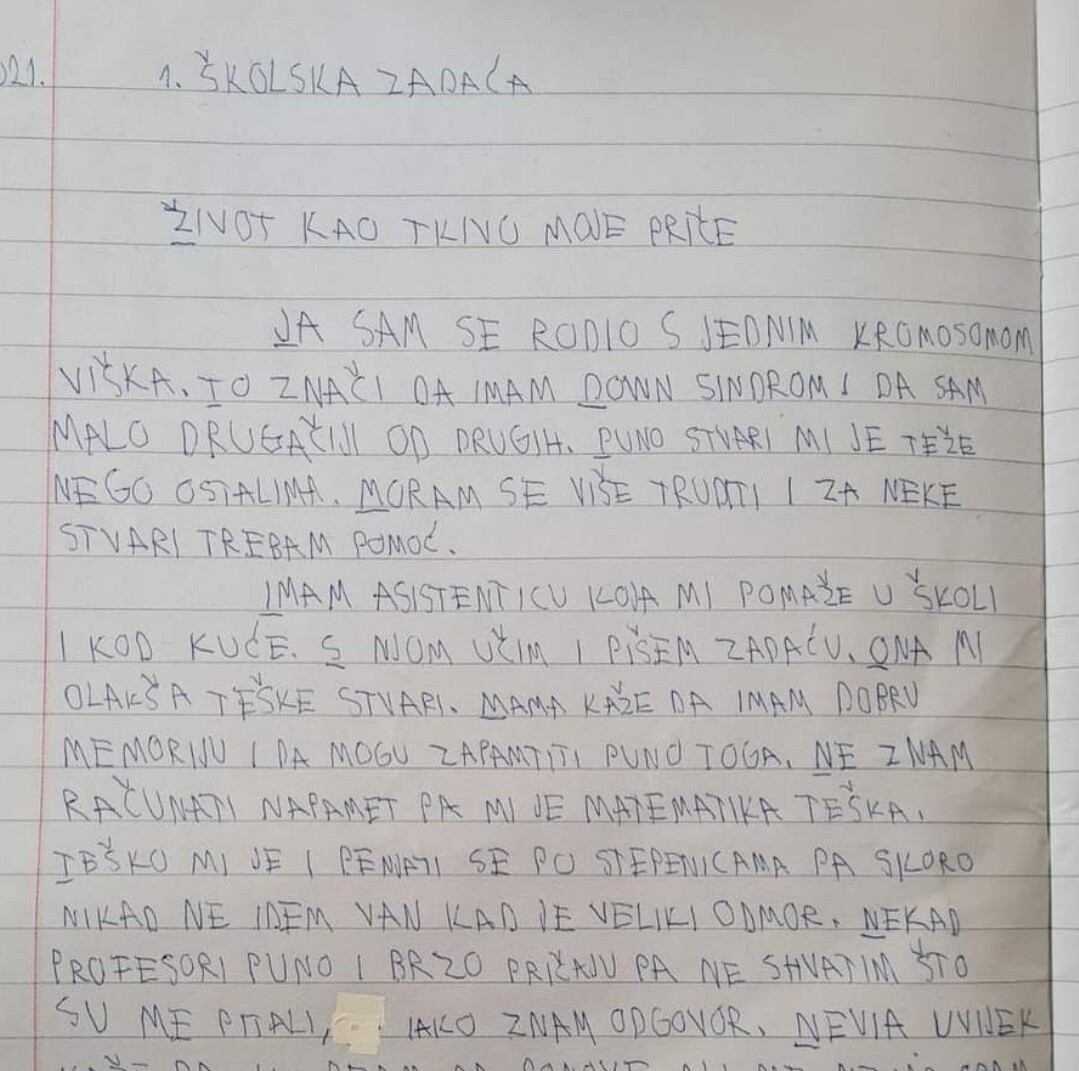 021.
1. ŠKOLSKA ZADAĆA
ŽIVOT KAO TKIVO MOJE PRIČE
JA SAM SE RODIO S JEDNIM KROMOSOMOM
VIŠKA. TO ZNAČI DA IMAM DOWN SINDROM I DA SAM
MALO DRUGAČIJI OD DRUGIH. PUNO STVARI MI JE TEŽE
NEGO OSTALIMA. MORAM SE VIŠE TRUDITI I ZA NEKE
STVARI TREBAM POMOĆ.
IMAM ASISTENTICU KOJA MI POMAŽE U ŠKOLI
I KOD KUĆE. S NJOM UČIM I PIŠEM ZADAĆU. ONA MI
OLAKŠA TEŠKE STVARI. MAMA KAŽE DA IMAM DOBRU
MEMORIJU I DA MOGU ZAPAMTITI PUNO TOGA. NE ZNAM
RAČUNATI NAPAMET PA MI JE MATEMATIKA TEŠKA.
TEŠKO MI JE I PENJATI SE PO STEPENICAMA PA SKORO
NIKAD NE IDEM VAN KAD JE VELIKI ODMOR. NEKAD
PROFESORI PUNO I BRZO PRIČAJU PA NE SHVATIM ŠTO
SU ME PITALI, IAKO ZNAM ODGOVOR. NEVIA UVIJEK